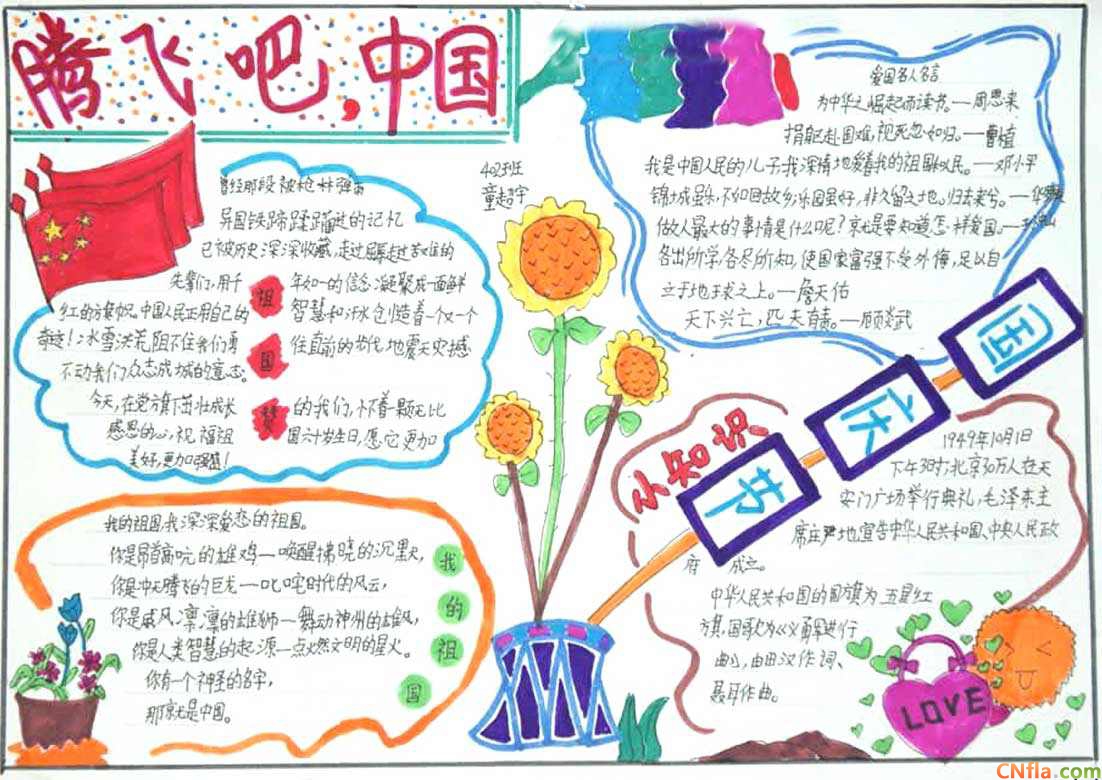 腾飞吧,中国
402班
童超宇
曾经那段被枪林弹雨
异国铁蹄蹂躏过的记忆
已被历史深深收藏,走过屈辱走过苦难的
先辈们,用千年如一的信念凝聚成一面鲜
红的旗帜。中国人民正用自己的智慧和汗水创造着一个又一个
奇迹!冰雪洪荒,阻不住我们勇往直前的步伐,地震天灾撼
不动我们众志成城的意志。
今天,在党旗下茁壮成长的我们,怀着一颗无比
感恩的心,祝福祖国六十岁生日,愿它更加
美好,更加强盛!
祖
国
赞
爱国名人名言
为中华之崛起而读书。—周恩来
捐躯赴国难,视死忽如归。—曹植
我是中国人民的儿子,我深情地爱着我的祖国和人民。—邓小平
锦城虽乐,不如回故乡;乐园虽好,非久留之地。归去来兮。—华
做人最大的事情是什么呢?就是要知道怎样爱国。—
各出所学,各尽所知,使国家富强不受外侮,足以自
立于地球之上。—詹天佑
天下兴亡,匹夫有责。—顾炎武
我的祖国,我深深爱恋的祖国。
你是昂首高吭的雄鸡—唤醒拂晓的沉默,
你是冲天腾飞的巨龙—叱咤时代的风云,
你是威风凛凛的雄狮—舞动神州的雄风,
你是人类智慧的起源—点燃文明的星火。
你有一个神圣的名字,
那就是中国。
我
的
祖
国
国
庆
节
小知识
1949年10月1日
下午3时,北京30万人在天
安门广场举行典礼,毛泽东主
席庄严地宣告中华人民共和国,中央人民政
府成立。
中华人民共和国的国旗为五星红
旗,国歌为《义勇军进行
曲》,由田汉作词、
聂耳作曲。
LOVE
CNfla.com